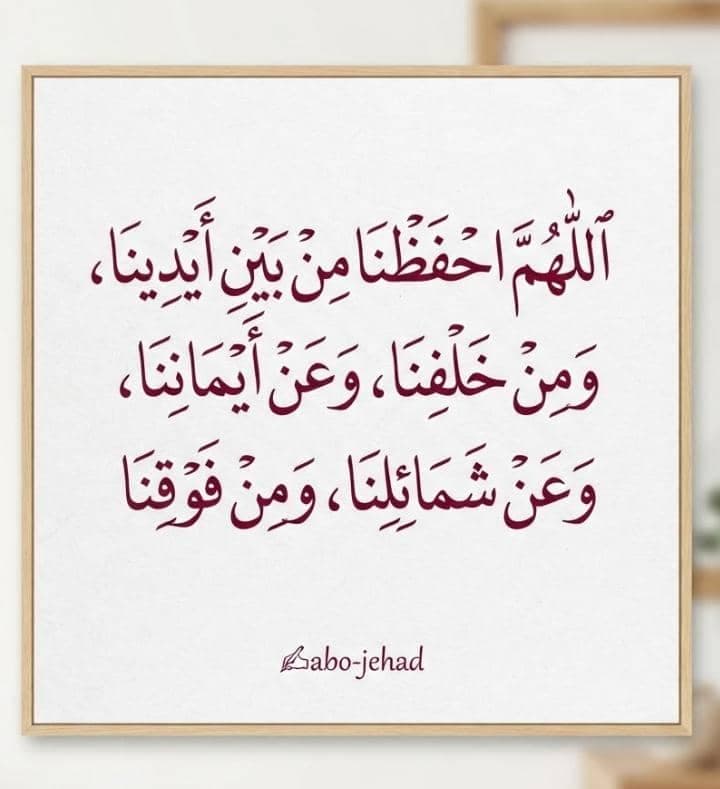 ٱللَّهُمَّ احْفَظْنَا مِنْ بَيْنِ أَيْدِينَا،
وَمِنْ خَلْفِنَا، وَعَنْ أَيْمَانِنَا،
وَعَنْ شَمَائِلِنَا، وَمِنْ فَوْقِنَا
✍abo-jehad